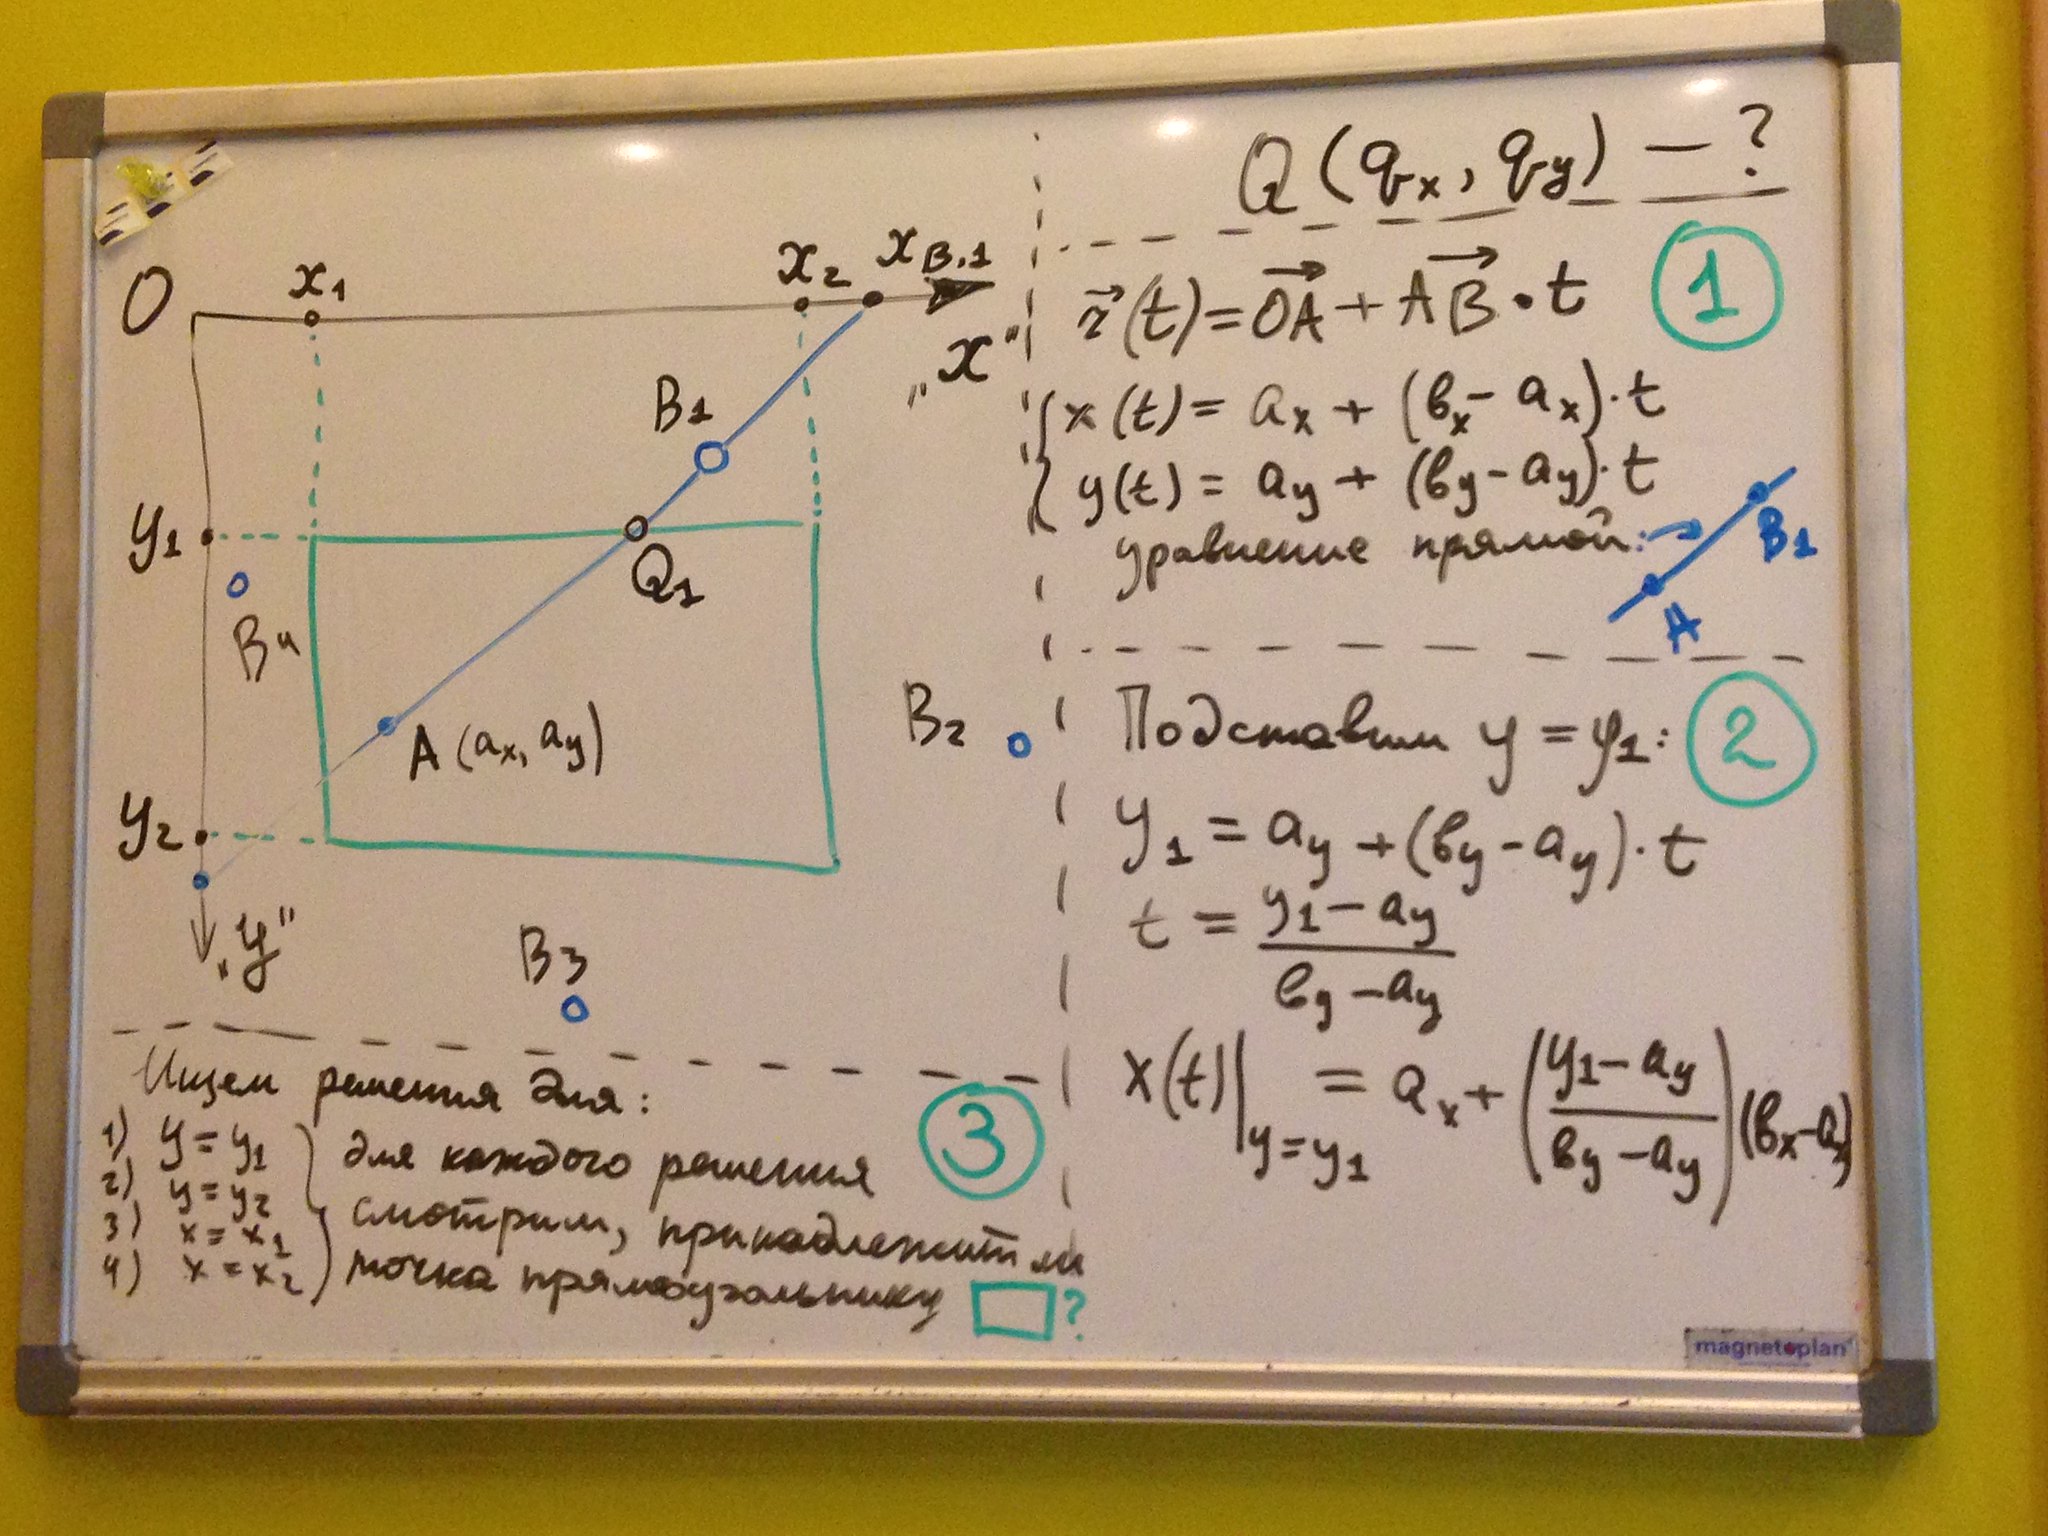 O
x₁
x₂
x_B,1
„x"
B₁
y₁
Q₁
B₄
A (aₓ, a_y)
B₂
y₂
„y"
B₃
Q (qₓ, q_y) — ?
1
r⃗(t) = O͞A⃗ + A͞B⃗ · t
{ x(t) = aₓ + (вₓ - aₓ) · t
{ y(t) = a_y + (в_y - a_y) · t
уравнение прямой:
B₁
A
2
Подставим y = y₁:
y₁ = a_y + (в_y - a_y) · t
t = (y₁ - a_y) / (в_y - a_y)
x(t)|_{y=y₁} = aₓ + ((y₁ - a_y) / (в_y - a_y)) (вₓ - aₓ)
3
Ищем решения для:
1) y = y₁
2) y = y₂
3) x = x₁
4) x = x₂
для каждого решения
смотрим, принадлежит ли
точка прямоугольнику ?
magnetoplan